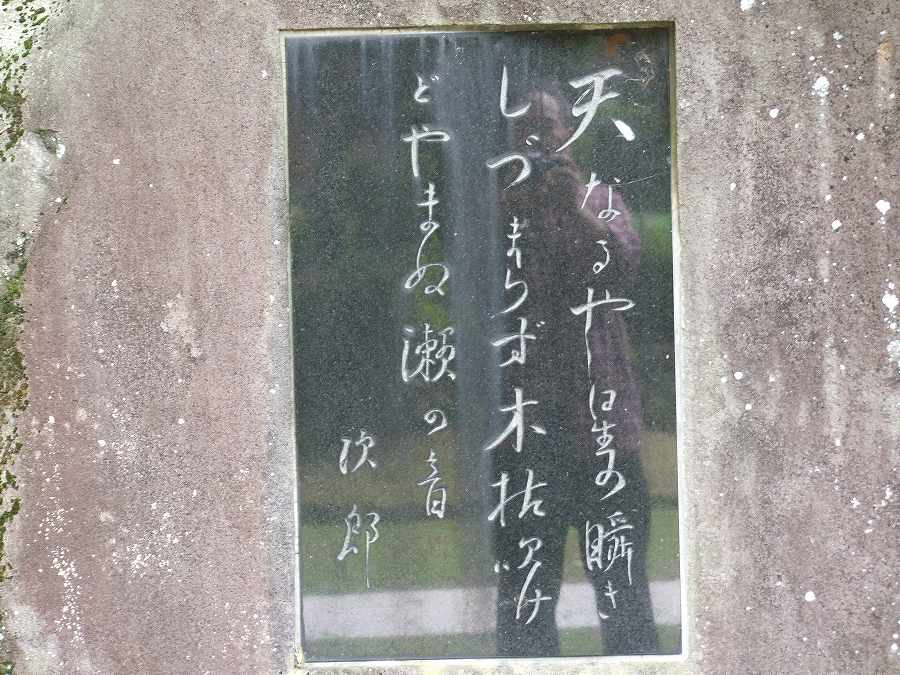 天なるや星の瞬き
しづまらず木枯吹け
どやまぬ瀬の音
次郎